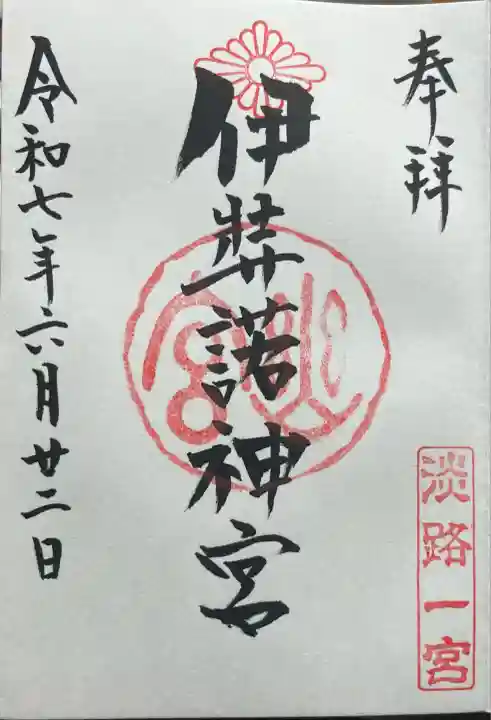 奉拝
淡路一宮
伊弉諾神宮
令和七年六月廿二日